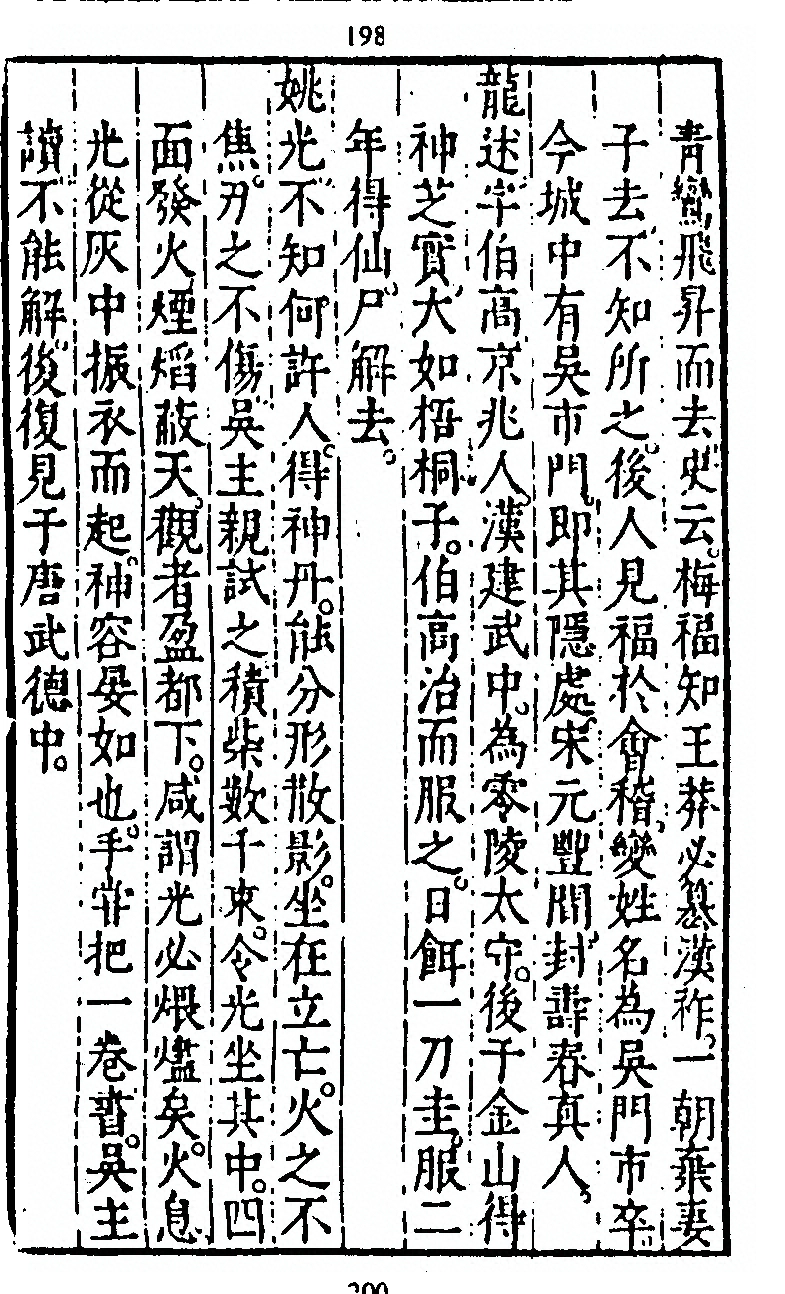 198
青鸞飛昇而去。史云。梅福知王莽必簒漢祚。一朝棄妻
子去、不知所之。後人見福於會稽、變姓名為吳門市卒。
今城中有吳市門。即其隱處。宋元豐間、封壽春真人。
龍述、字伯高、京兆人。漢建武中。為零陵太守。後于金山得
神芝實、大如梧桐子。伯高治而服之。日餌一刀圭。服二
年得仙。尸解去。
姚光、不知何許人。得神丹。能分形散影。坐在立亡。火之不
焦。刃之不傷。吳主親試之。積柴數千束。令光坐其中。四
面發火。煙焰蔽天。觀者盈都下。咸謂光必煨燼矣。火息
光從灰中振衣而起。神容晏如也。手
把一卷書。吳主
讀、不能解。後復見于唐武德中。
200